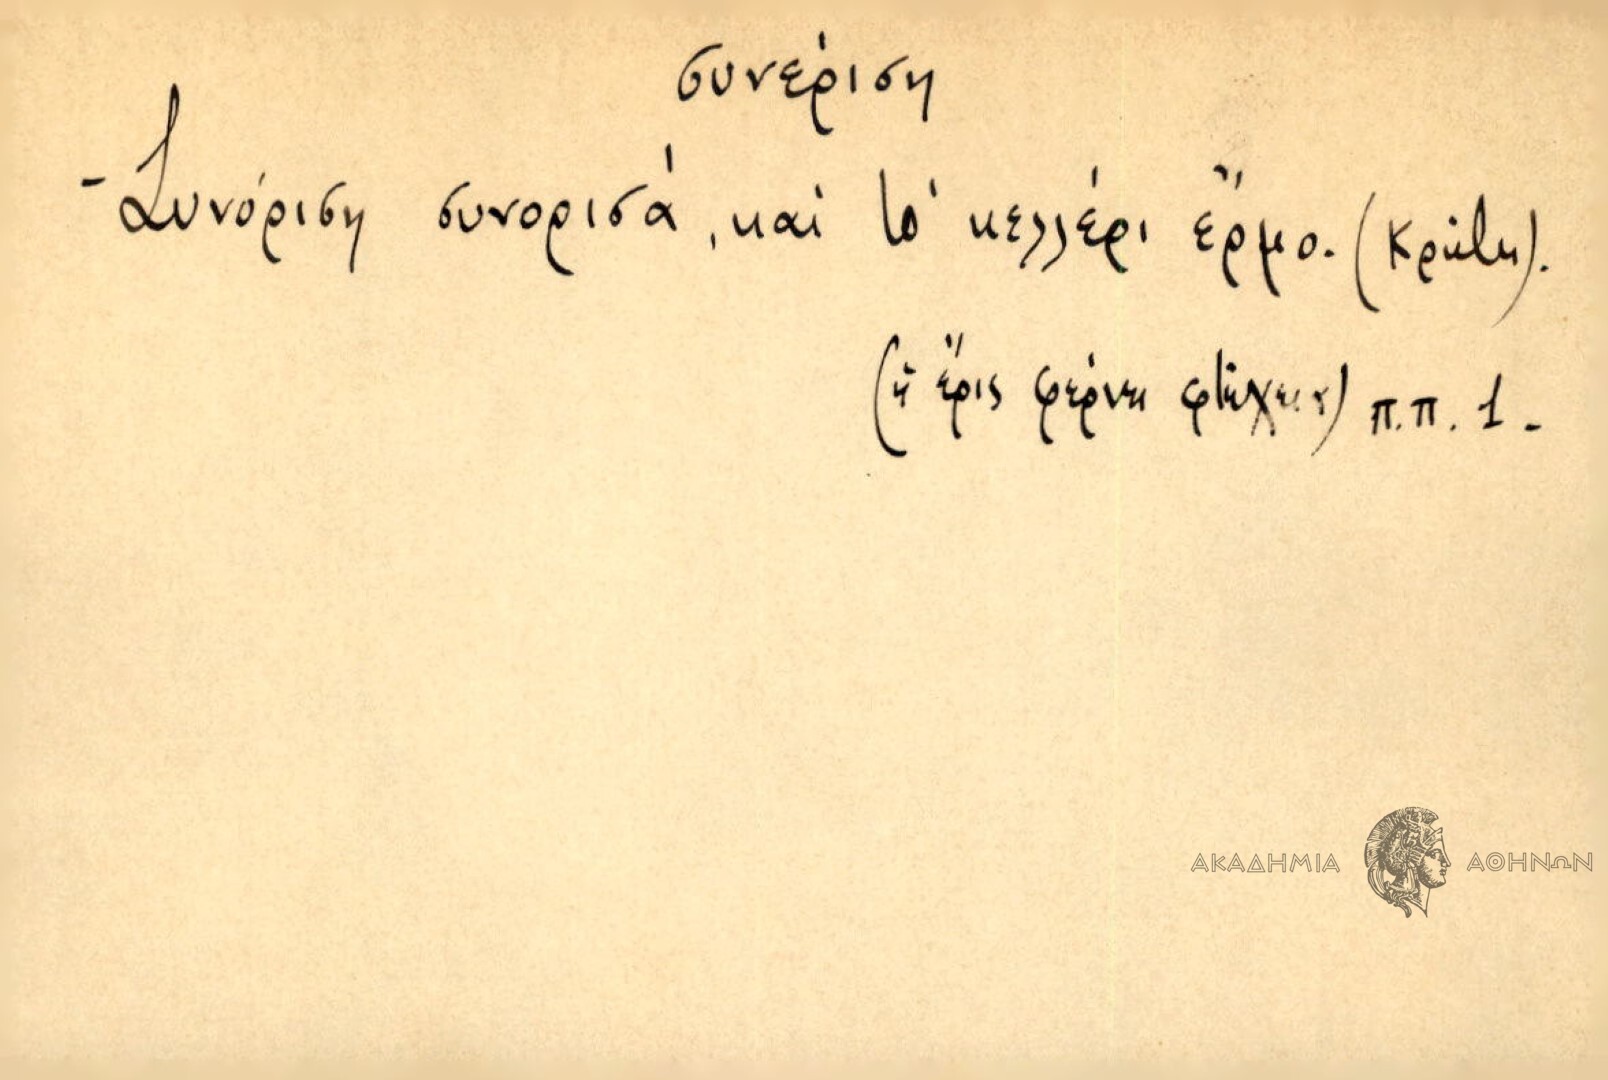 συνέριση
- Συνόριση συνορισά, καὶ τὸ κελλέρι ἔρμο. (Κρήτη).
(ἡ ἔρις φέρνει φτώχεια) π.π. 1.-
ΑΚΑΔΗΜΙΑ ΑΘΗΝΩΝ